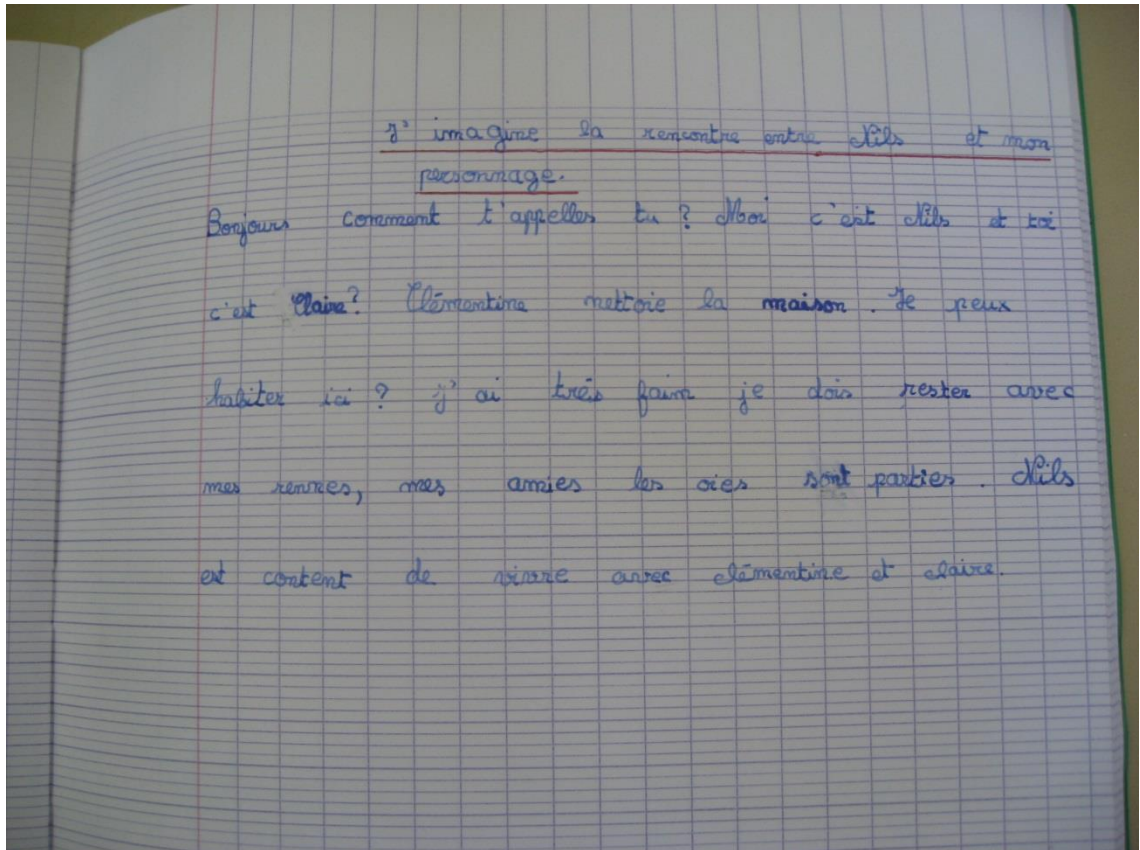 J'imagine la rencontre entre Nils et mon
personnage.
Bonjours comment t'appelles tu ? Moi c'est Nils et toi
c'est Claire ? Clémentine nettoie la maison. Je peux
habiter ici ? j'ai trés faim je dois rester avec
mes rennes, mes amies les oies sont parties. Nils
est content de vivre avec clémentine et claire.